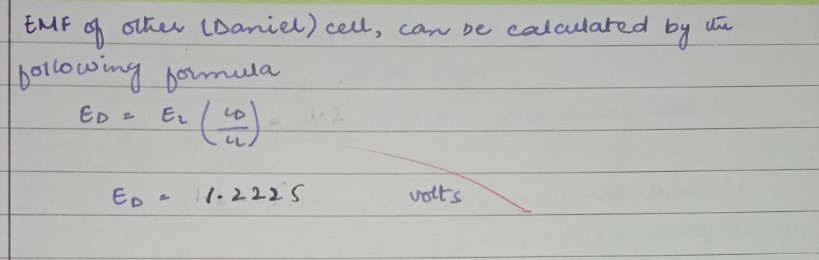 EMF of other (Daniel) cell, can be calculated by the
following formula
ED = EL (LD/LL) = 1.2
ED = 1.2225 volts